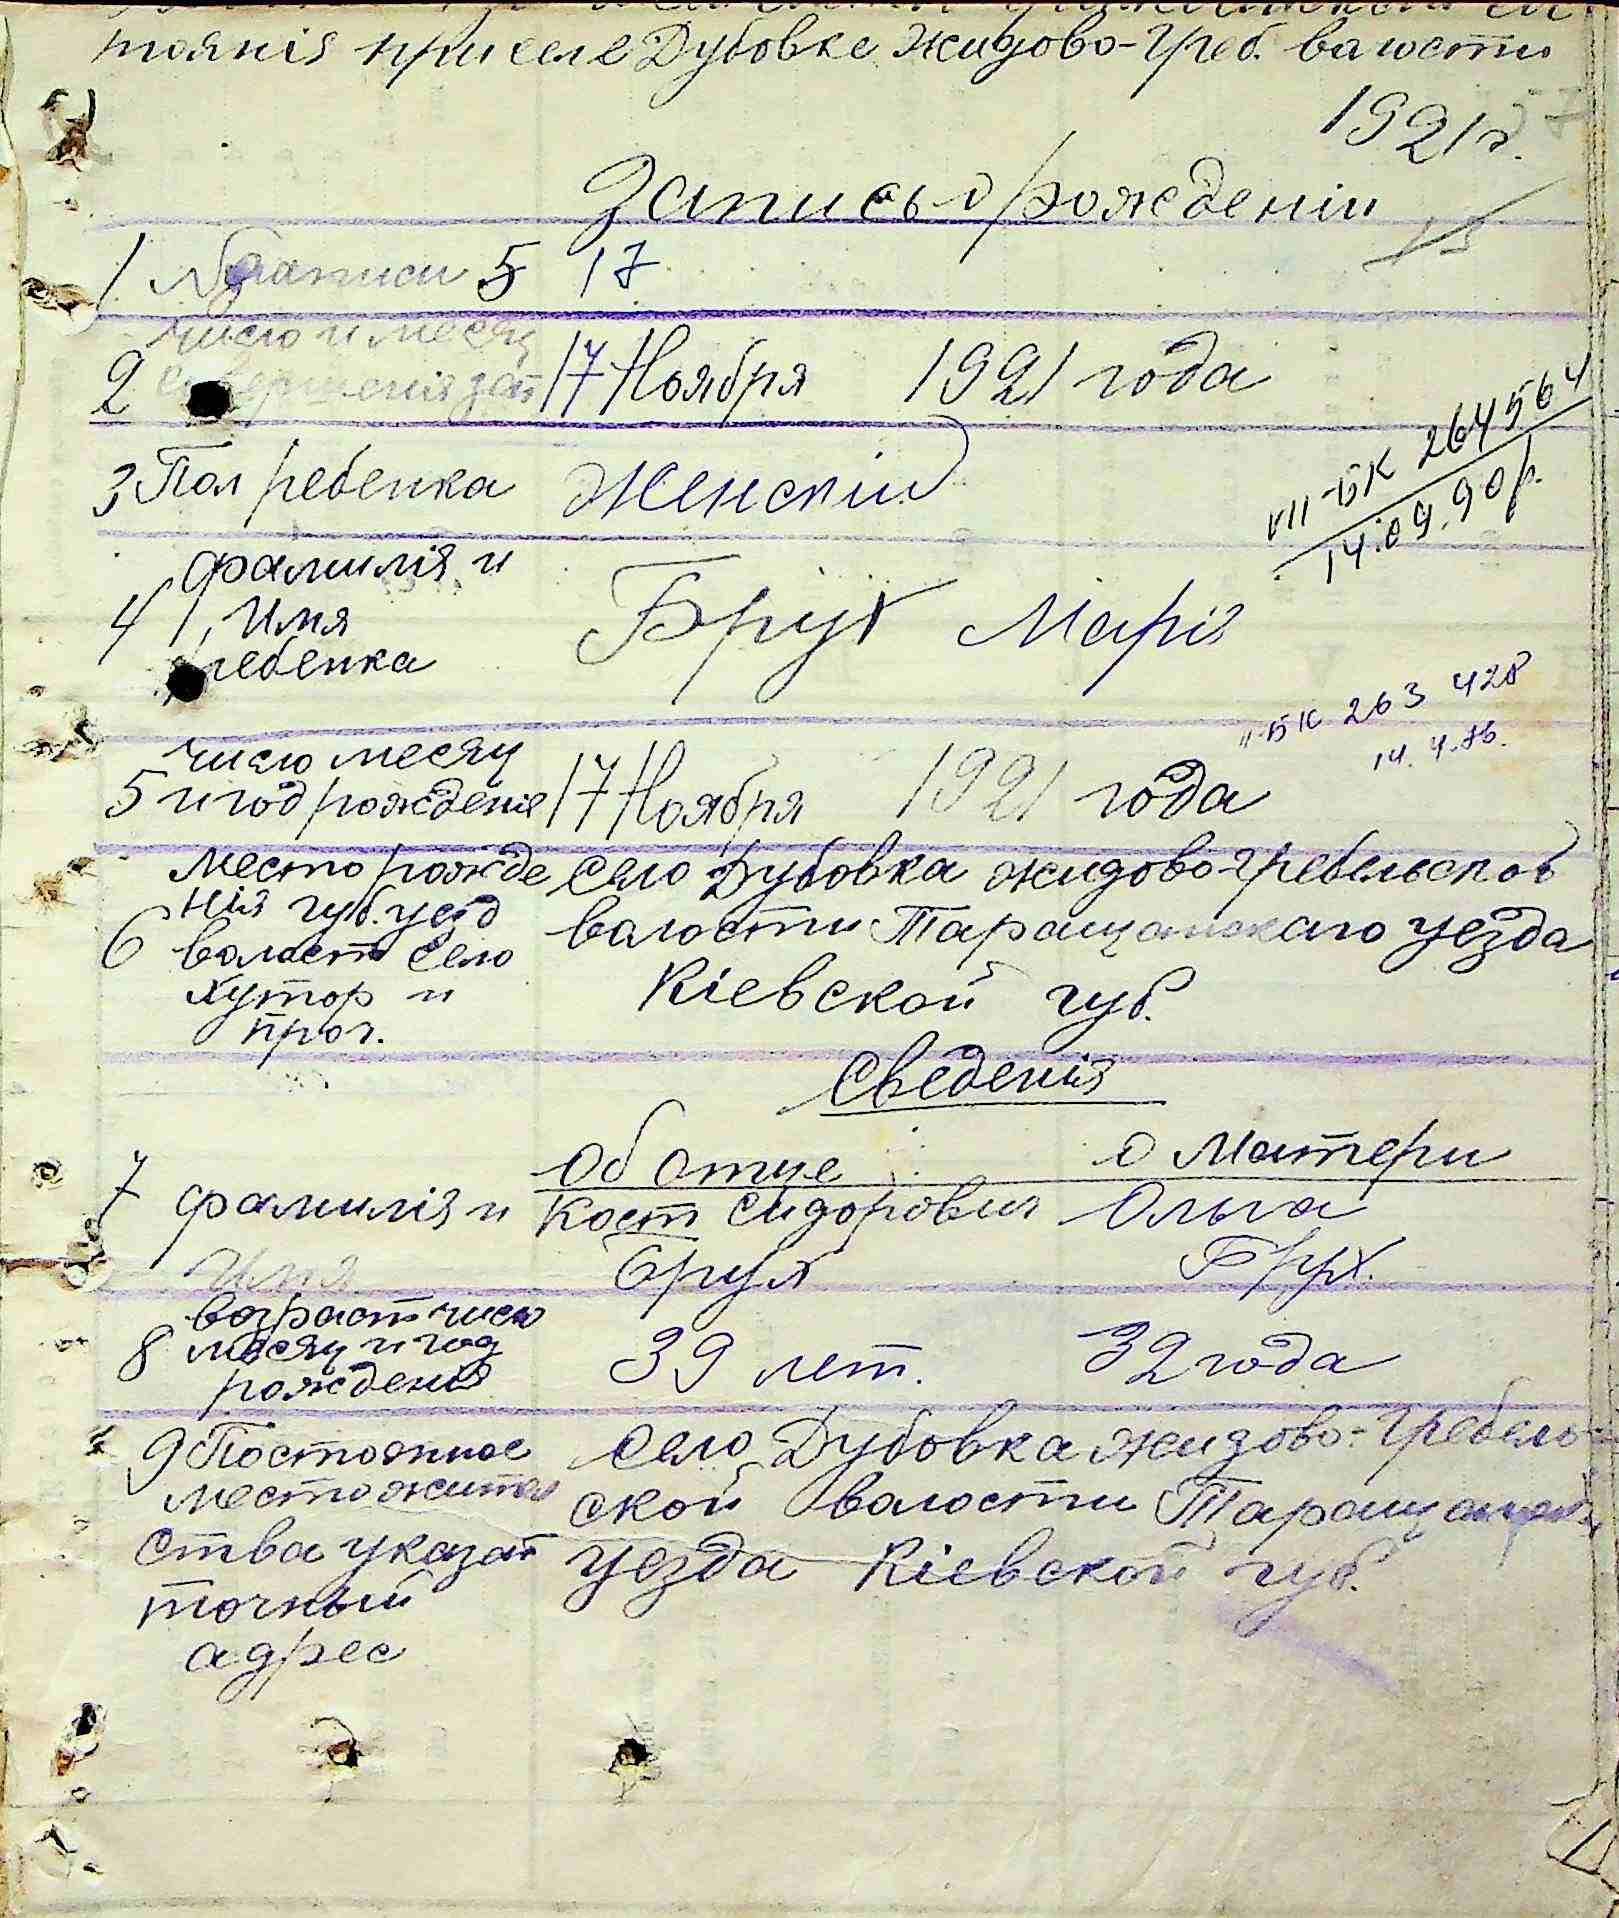 тоянія при селе Дубовке Жидово-Греб. валости
1921 г.
Запись о рожденіи
1 № записи 5 17
число и месяц
2 совершенія зап 17 Ноября 1921 года
3 Пол ребенка Женскій
VII-БК 264564
14.09.90р.
фамилія и
4 Имя Брух Марія
ребенка
II-БК 263 428
число месяц
14. 4. 86.
5 и год рожденія 17 Ноября 1921 года
место рожде село Дубовка Жидово-Гребельской
нія губ. уезд
6 валост село валости Таращанскаго уезда
хутор и Кіевской губ.
проч.
Сведенія
об отце о Матери
7 фамилія и Кост Сидорович Ольга
Имя Брух Брух.
возраст число
8 месяц и год 39 лет. 32 года
рожденія
9 Постоянное село Дубовка Жидово-Гребель
местожитель ской валости Таращанск
ства указат уезда Кіевской губ.
точный
адрес